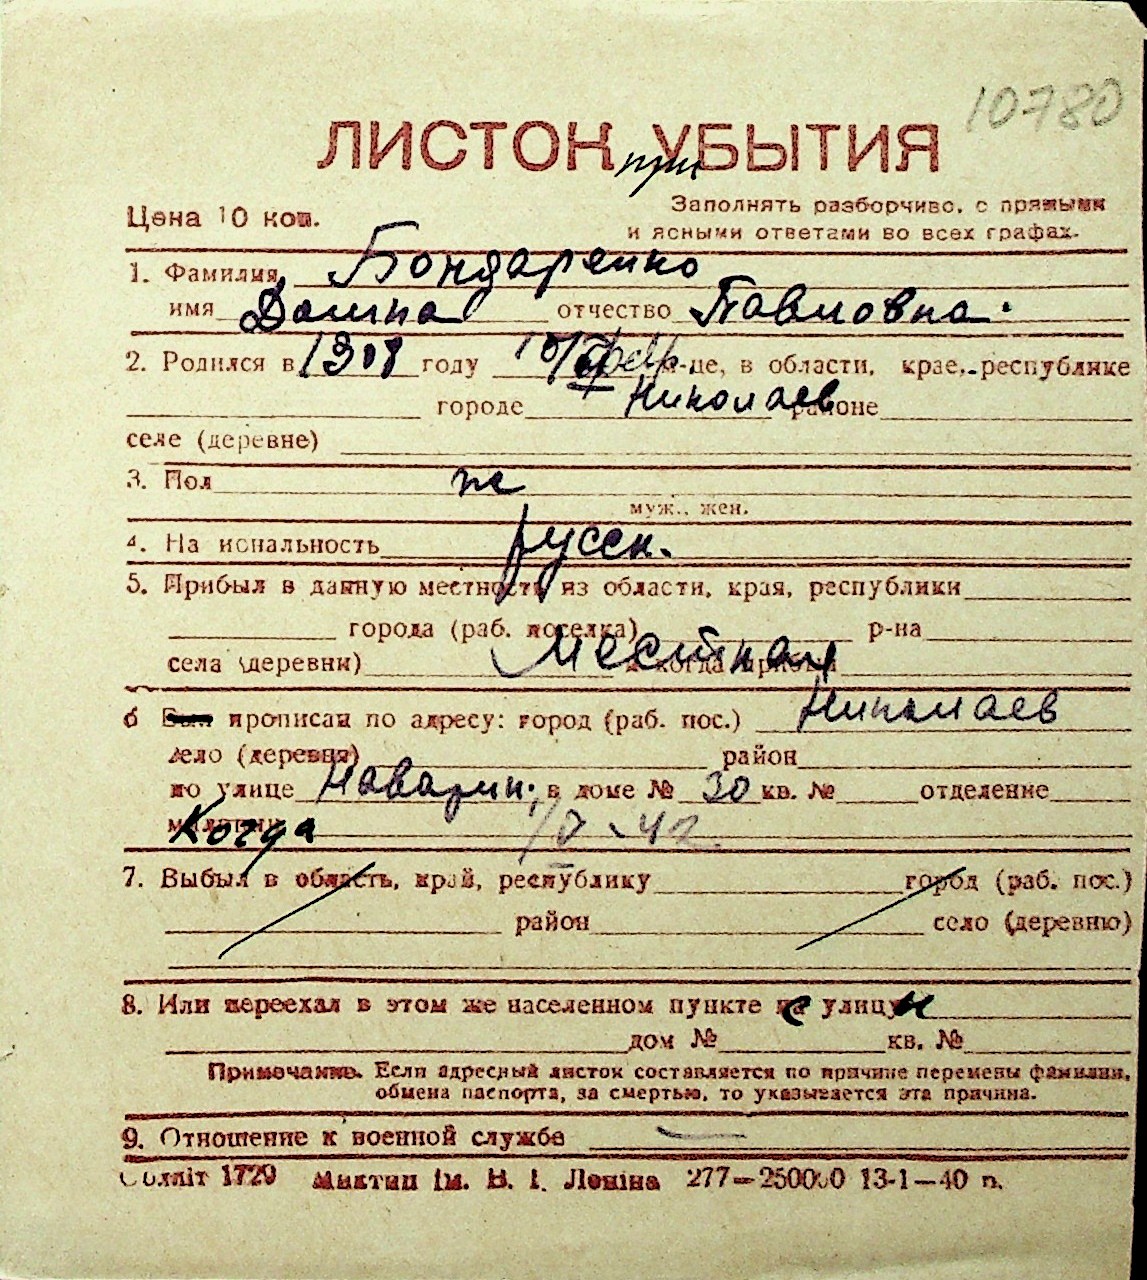 10780
ЛИСТОК при УБЫТИЯ
Цена 10 коп. Заполнять разборчиво, с прямыми
и ясными ответами во всех графах.
1. Фамилия Бондаренко
имя отчество Павловна.
2. Родился в 1908 году 10/II февр. м-це, в области, крае, республике
городе Николаев районе
селе (деревне)
3. Пол ж
муж., жен.
4. На иональность русск.
5. Прибыл в данную местность из области, края, республики
города (раб. поселка) р-на
села (деревни) Местная и когда прибыл
6 Был прописан по адресу: город (раб. пос.) Николаев
село (деревня) район
по улице Наварин. в доме № 30 кв. № отделение
милиции Когда 1/V - 42
7. Выбыл в область, край, республику город (раб. пос.)
район село (деревню)
8. Или переехал в этом же населенном пункте с улицы
дом № кв. №
Примечание. Если адресный листок составляется по причине перемены фамилии,
обмена паспорта, за смертью, то указывается эта причина.
9. Отношение к военной службе —
Облліт 1729 Миктип ім. В. І. Леніна 277—250000 13-1—40 р.